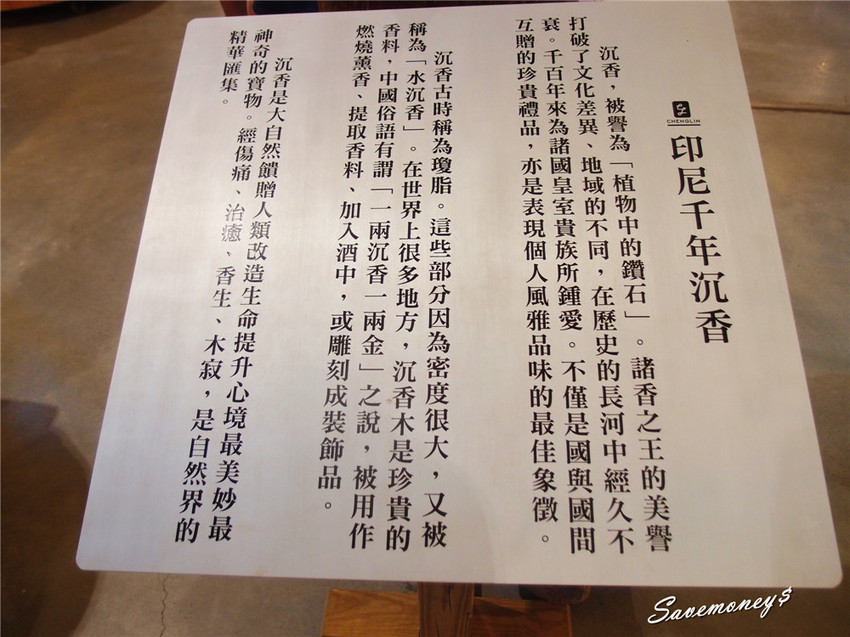 CHENGLIN
印尼千年沉香
沉香，被譽為「植物中的鑽石」。諸香之王的美譽
打破了文化差異、地域的不同，在歷史的長河中經久不
衰。千百年來為諸國皇室貴族所鍾愛。不僅是國與國間
互贈的珍貴禮品，亦是表現個人風雅品味的最佳象徵。
沉香古時稱為瓊脂。這些部分因為密度很大，又被
稱為「水沉香」。在世界上很多地方，沉香木是珍貴的
香料，中國俗語有謂「一兩沉香一兩金」之說，被用作
燃燒薰香、提取香料、加入酒中，或雕刻成裝飾品。
沉香是大自然饋贈人類改造生命提升心境最美妙最
神奇的寶物。經傷痛、治癒、香生、木寂，是自然界的
精華匯集。
Savemoney$